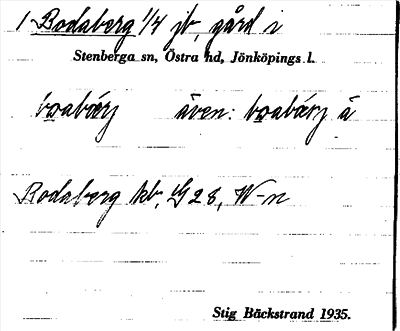 1 Rodaberg 1/4 jb, gård i
Stenberga sn, Östra hd, Jönköpings l.
även: å
Rodaberg kb, G28, W-n
Stig Bäckstrand 1935.